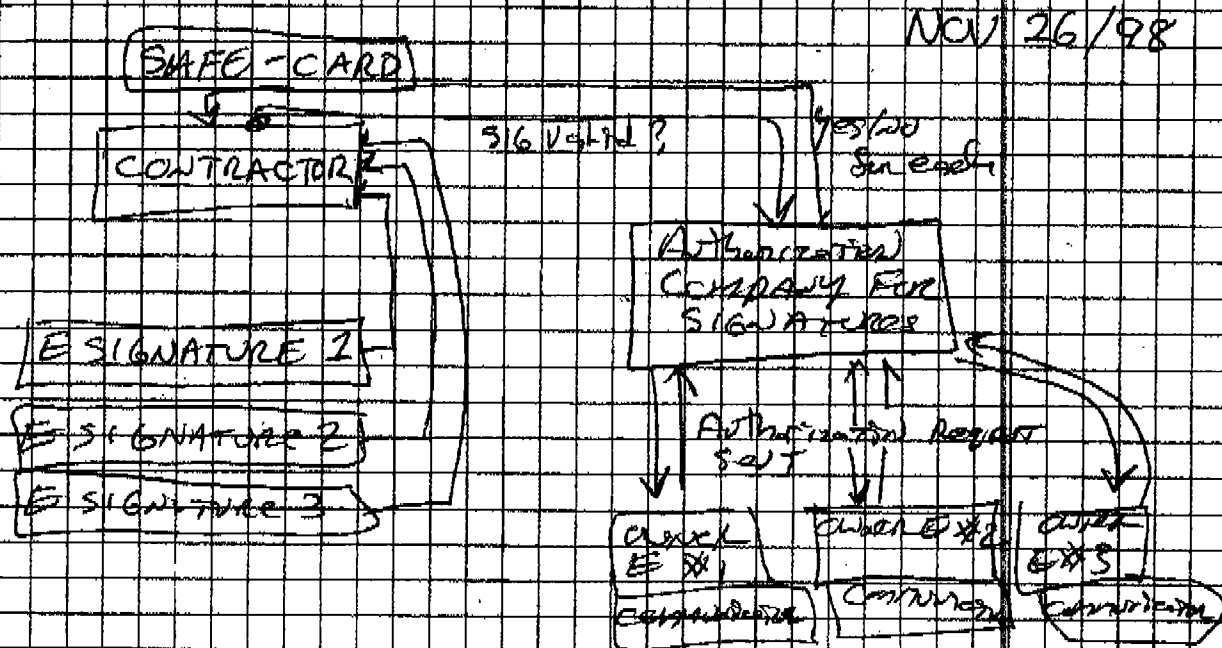 NOV 26/98
SAFE-CARD
CONTRACTOR
SIG Valid?
Yes/no
for each
Authorization
Company For
SIGNATURES
E SIGNATURE 1
E SIGNATURE 2
E SIGNATURE 3
Authorization Request
sent
owner
E #1
owner E #2
owner
E #3
Communication
Communication